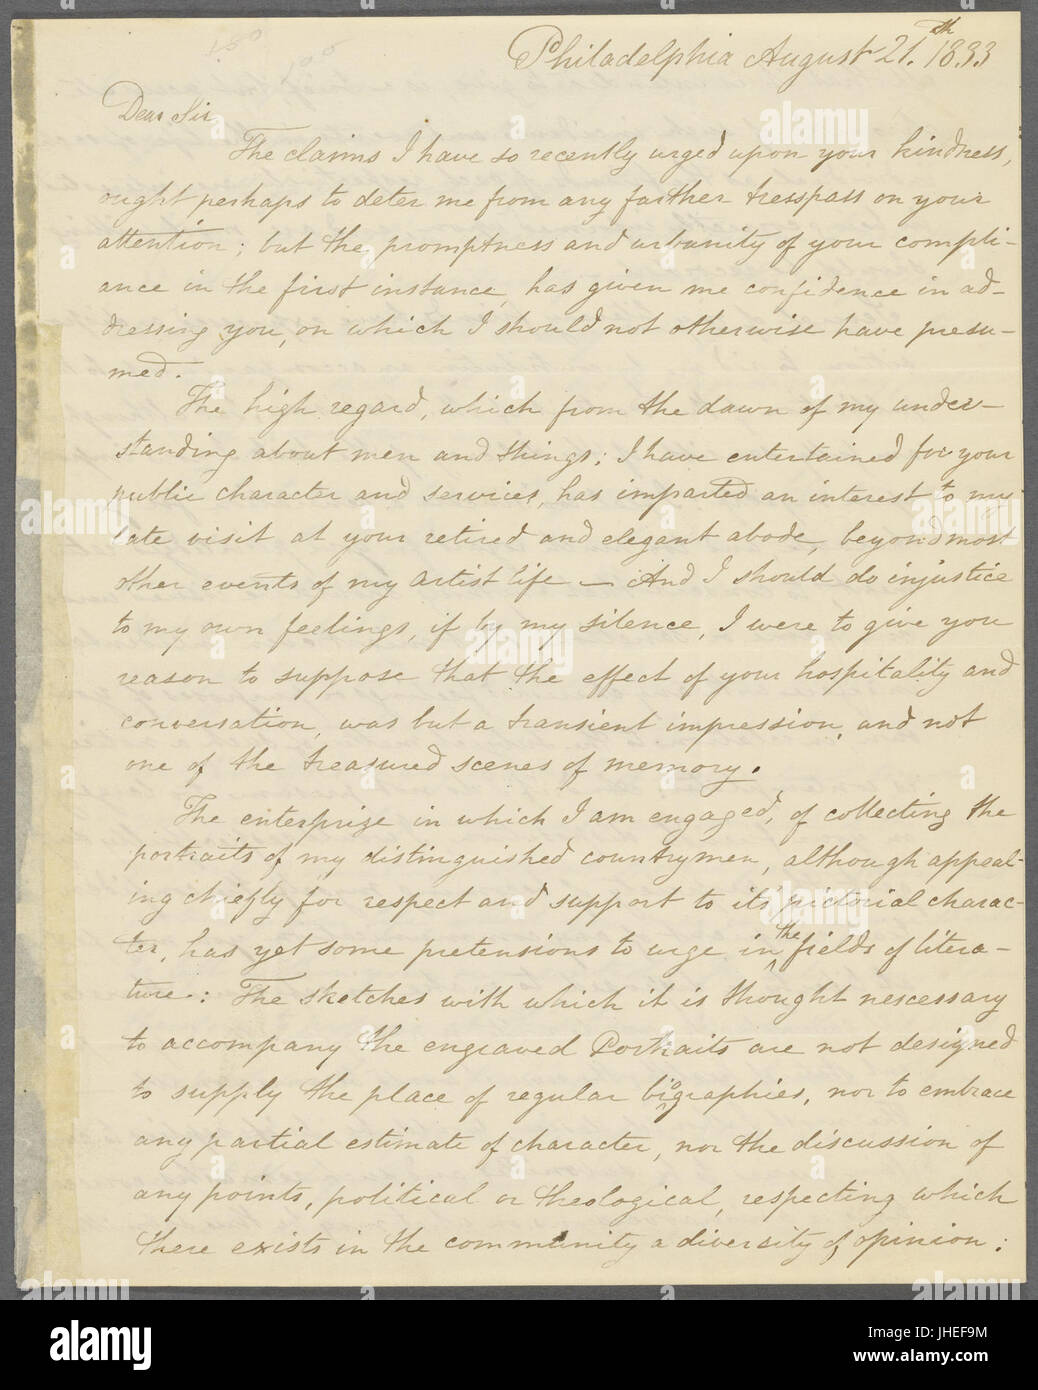 Philadelphia August 21.th 1833
Dear Sir,
The claims I have so recently urged upon your kindness,
ought perhaps to deter me from any farther tresspass on your
attention; but the promptness and urbanity of your compli-
ance in the first instance, has given me confidence in ad-
dressing you, on which I should not otherwise have presu-
med.
The high regard, which from the dawn of my under-
standing about men and things; I have entertained for your
public character and services, has imparted an interest to my
late visit at your retired and elegant abode, beyond most
other events of my artist life — And I should do injustice
to my own feelings, if by my silence, I were to give you
reason to suppose that the effect of your hospitality and
conversation, was but a transient impression, and not
one of the treasured scenes of memory.
The enterprize in which I am engaged, of collecting the
portraits of my distinguished countrymen, although appeal-
ing chiefly for respect and support to its' pictorial charac-
ter, has yet some pretensions to urge in the fields of litera-
ture: The sketches with which it is thought nescessary
to accompany the engraved Portraits are not designed
to supply the place of regular biographies, nor to embrace
any partial estimate of character, nor the discussion of
any points, political or theological, respecting which
there exists in the community a diversity of opinion:
alamy
Image ID: JHEF9M
www.alamy.com